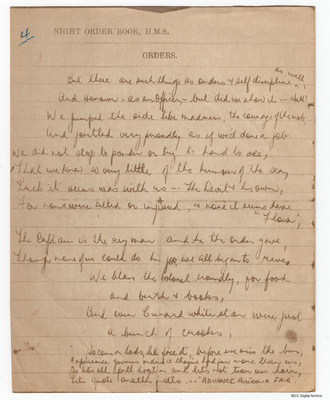 4
NIGHT ORDER BOOK, H.M.S.
ORDERS.
as well
But there are such things as orders & self discipline
And Honour - as an Officer - but did we show it -- Hell!
We jumped the order like madmen, the courage of
And jostled very proudly as if we'd done a job.
We did not stop to ponder or try to hard to see,
That we knew so very little of the of the sea,
Luck it seems was with us -- The heart
For none were killed or injured, & none it seems have
"
The Captain is the key man and he the order gave,
Though none of us could do his job, we all began to rave
We blam the roundly, for food
and berth & books,
And even Cunard white star were just
a bunch of crooks,
So come on lads, lets face it, before we miss the bus,
Experience governs orders & theyve had far more than us,
So lets all pull together and lets not tear our hair,
Lets quote another, pals ... "ADVANCE AUSTRALIA FAIR.
BICC Digital Archive